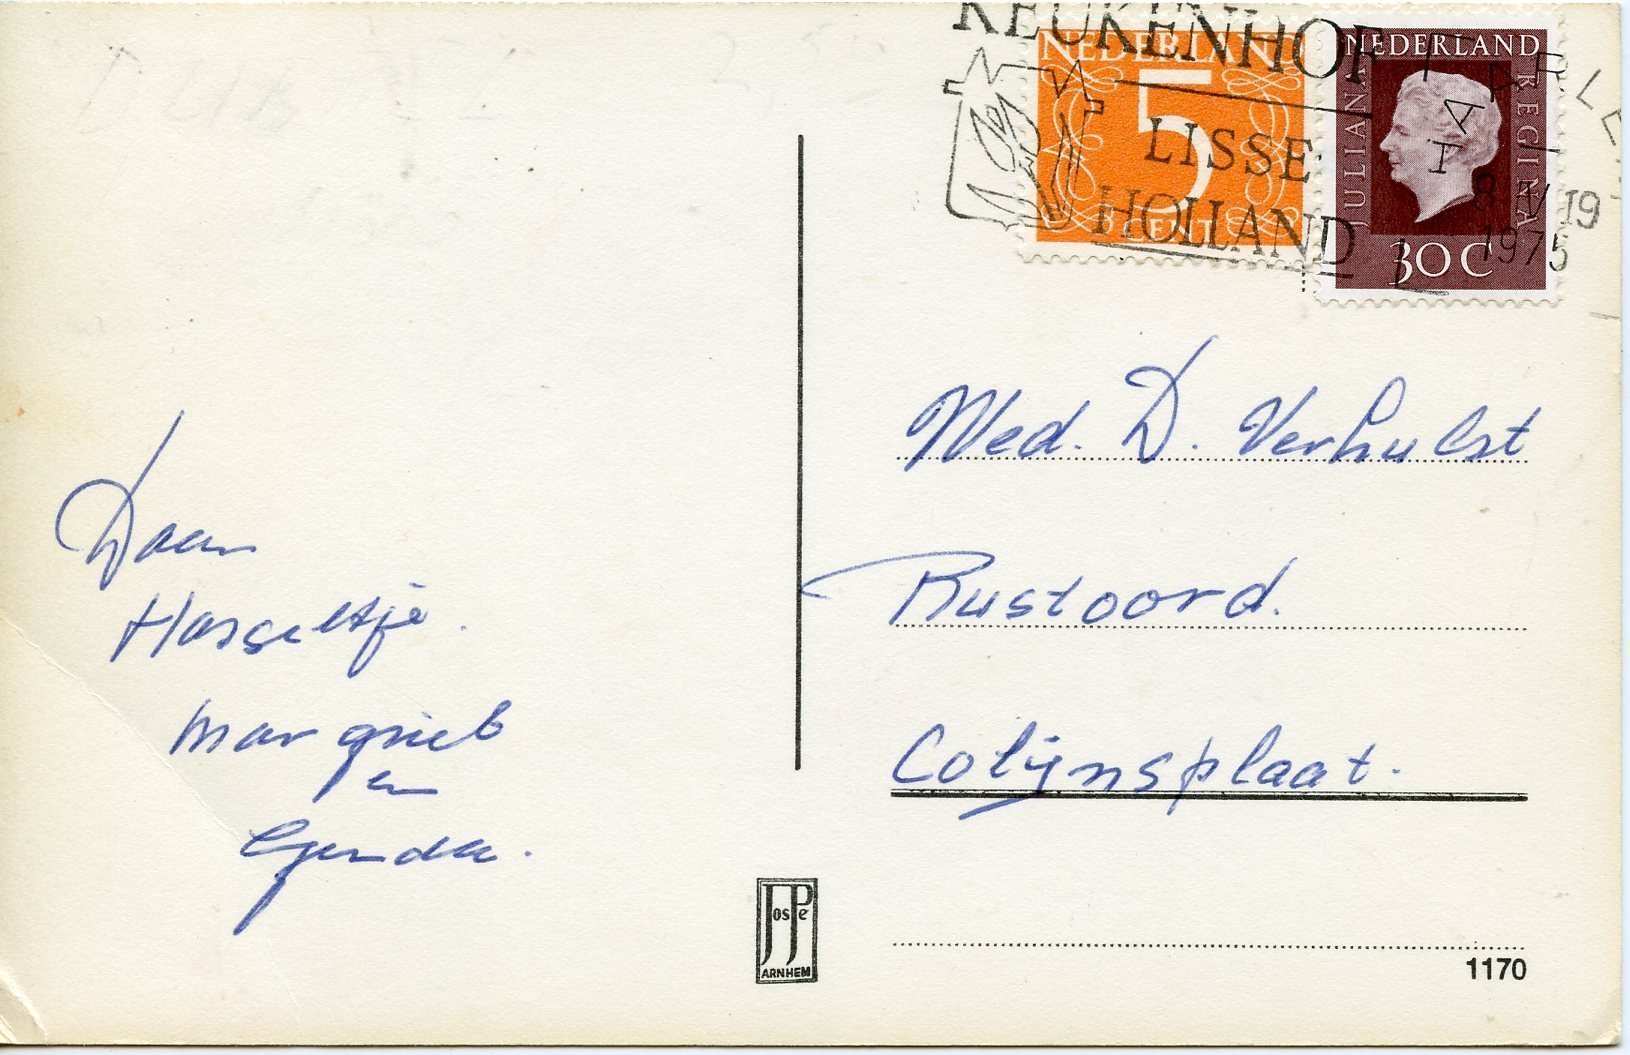 KEUKENHOF
LISSE
HOLLAND
NEDERLAND
5
5 CENT
NEDERLAND
JULIANA
REGINA
30 C
1975
Daan
Hasseltje.
Margriet
en
Wed. D. Verhulst
Rustoord.
Colijnsplaat.
JosPe
ARNHEM
1170